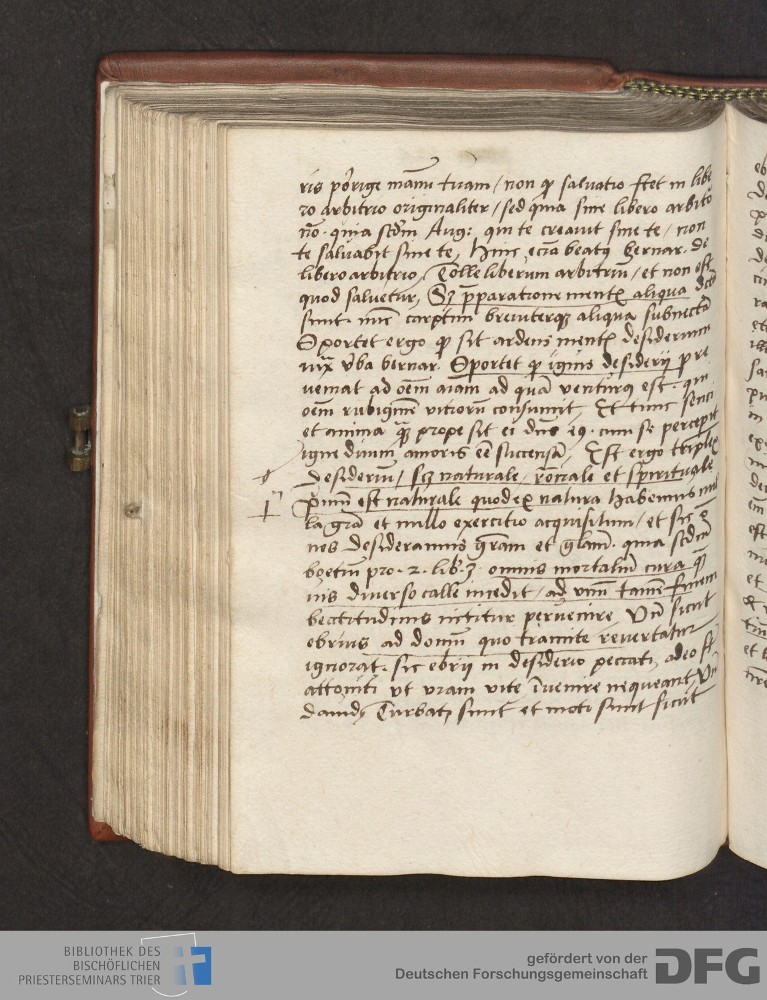 ris porige manu tuam / non q salvatio stet in libe
ro arbitrio originaliter / sed quia sine libero arbitro
no. quia scdm Aug: qui te creavit sine te / non
te salvabit sine te, Hinc ecia beatq bernar. de
libero arbitrio, Tolle liberum arbitriu / et non est
quod salvetur, Sz pparatione mentis aliqua dca
sunt. nuc carptim breviterqz aliqua subnecta
Oportet ergo q sit ardens mentis desiderium
iux vba bernar. Oportet q ignis desiderij pre
veniat ad oem aiam ad qua venturq est. qui
oem rubigine vitioru consumit, Et tunc senci
et anima qz prope sit ei dns eq. cum se percepit
igne divini amoris ee succensa, Est ergo triplex
desideriu / scz naturale / roale et spirituale
Primu est naturale quod ex natura habemus nul
la gra et nullo exercitio acquisitum / et sic
nes desideramus gram et glam. quia scdm
boetiu pro. 2. lib. 3 omnis mortaliu cura
diverso calle incedit / ad unu tamen finem
beatitudinis nititur pervenire, Vn sicut
ebrius ad domu quo tramite revertatur
ignorat. sic ebrij in desiderio peccati, adeo st
attoniti ut viam vite invenire nequeant, Vn
david, Turbati sunt et moti sunt sicut
BIBLIOTHEK DES
BISCHÖFLICHEN
PRIESTERSEMINARS TRIER
gefördert von der
Deutschen Forschungsgemeinschaft
DFG